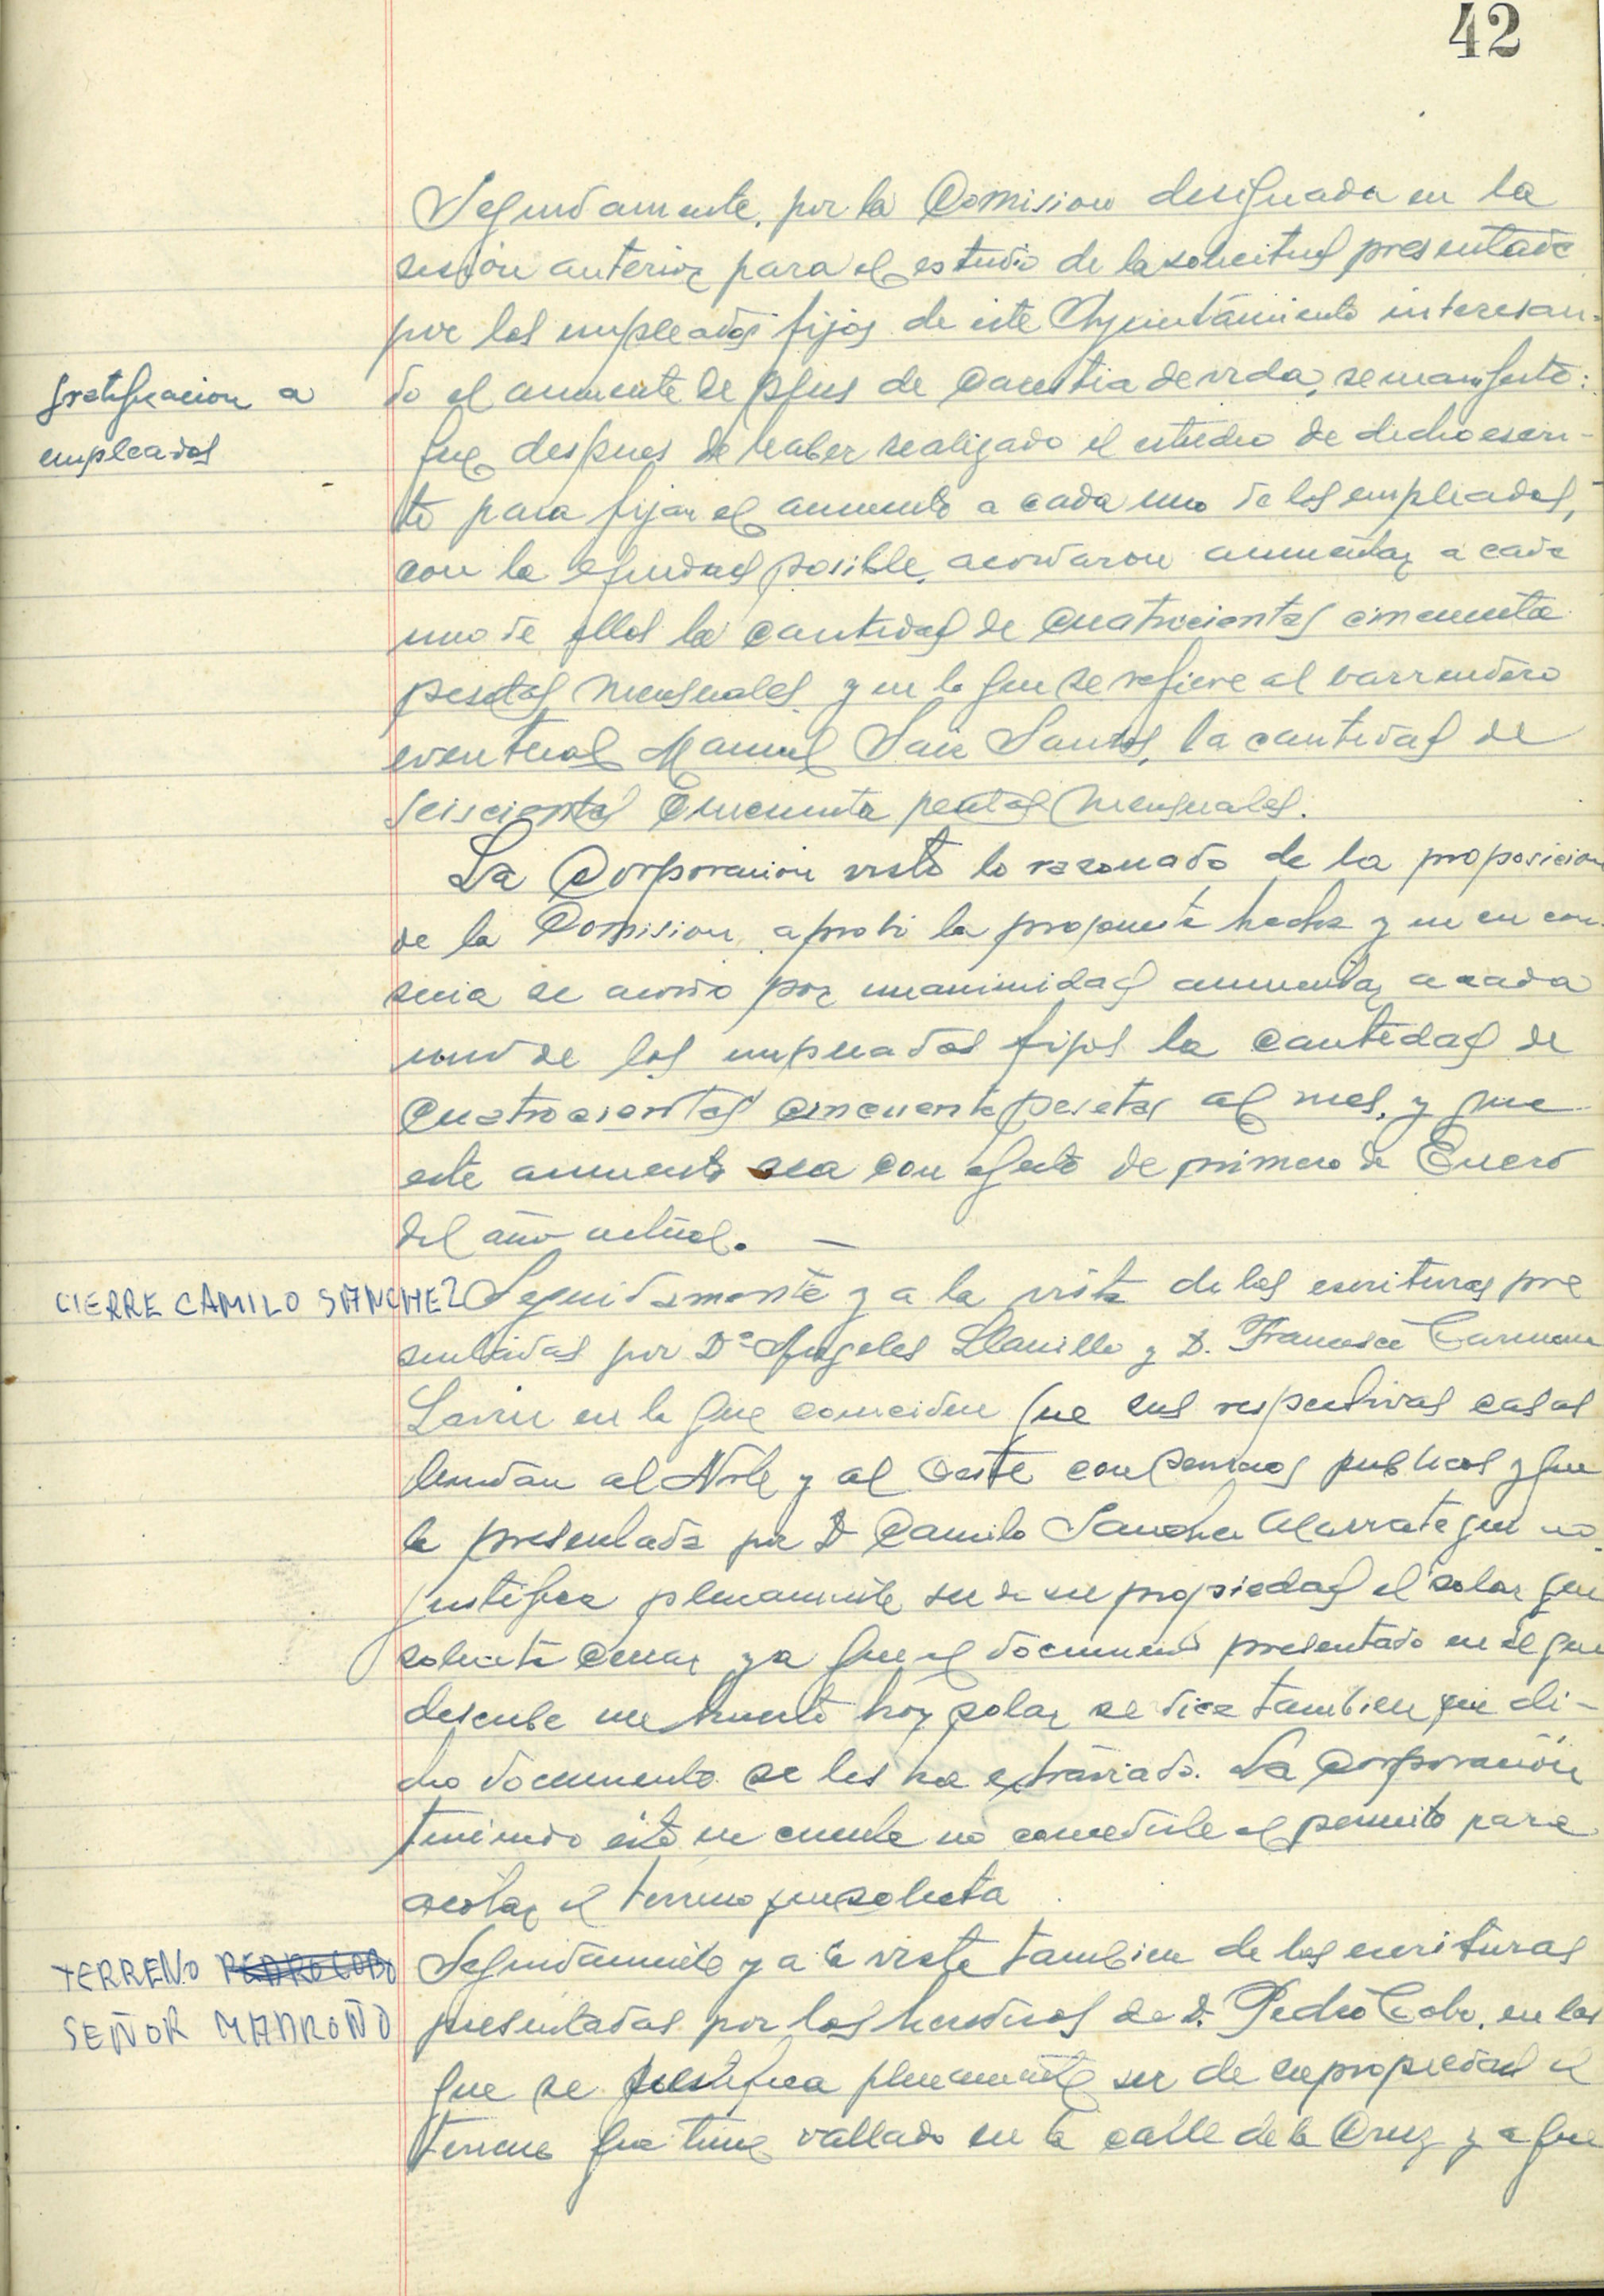 42
Seguidamente, por la Comision designada en la
sesión anterior para el estudio de la solicitud presentada
por los empleados fijos de este Ayuntamiento interesan-
gratificacion a
empleados
do el aumente de plus de Carestia de vida, se manifesto:
que despues de haber realizado el estudio de dicho escri-
to para fijar el aumento a cada uno de los empleados,
con la equidad posible, acordaron aumentar a cada
uno de ellos la cantidad de Cuatrocientas cincuenta
pesetas mensuales y en lo que se refiere al barrendero
eventual Manuel Saiz Santos, la cantidad de
Seiscientas Cincuenta pesetas mensuales.
La Corporacion visto lo razonado de la proposicion
de la Comision, aprobó la propuesta hecha y en su con-
secia se acordo por unanimidad aumentar a cada
uno de los empleados fijos la cantidad de
Cuatrocientas cincuenta pesetas al mes, y que
este aumento sea con efecto de primero de Enero
del año actual. —
CIERRE CAMILO SANCHEZ
Seguidamente y a la vista de las escrituras pre
sentadas por Dª Angeles Llanillo y D. Francisco Carmona
Lavin en la que coinciden que sus respectivas casas
lindan al Norte y al Oeste con terrenos publicos y que
la presentada por D Camilo Sanchez no
justifica plenamente ser de su propiedad el solar que
solicita cerrar ya que el documento presentado en el que
describe un huerto hoy solar se dice tambien que di-
cho documento se les ha extraviado. La Corporación
teniendo ésto en cuenta no concederle el permiso para
acotar el terreno que solicita.
TERRENO PEDRO COBO
SEÑOR MADROÑO
Seguidamente y a la vista tambien de las escrituras
presentadas por los herederos de D. Pedro Cobo, en las
que se justifica plenamente ser de su propiedad el
terreno que tiene vallado en la calle de la Cruz y a que